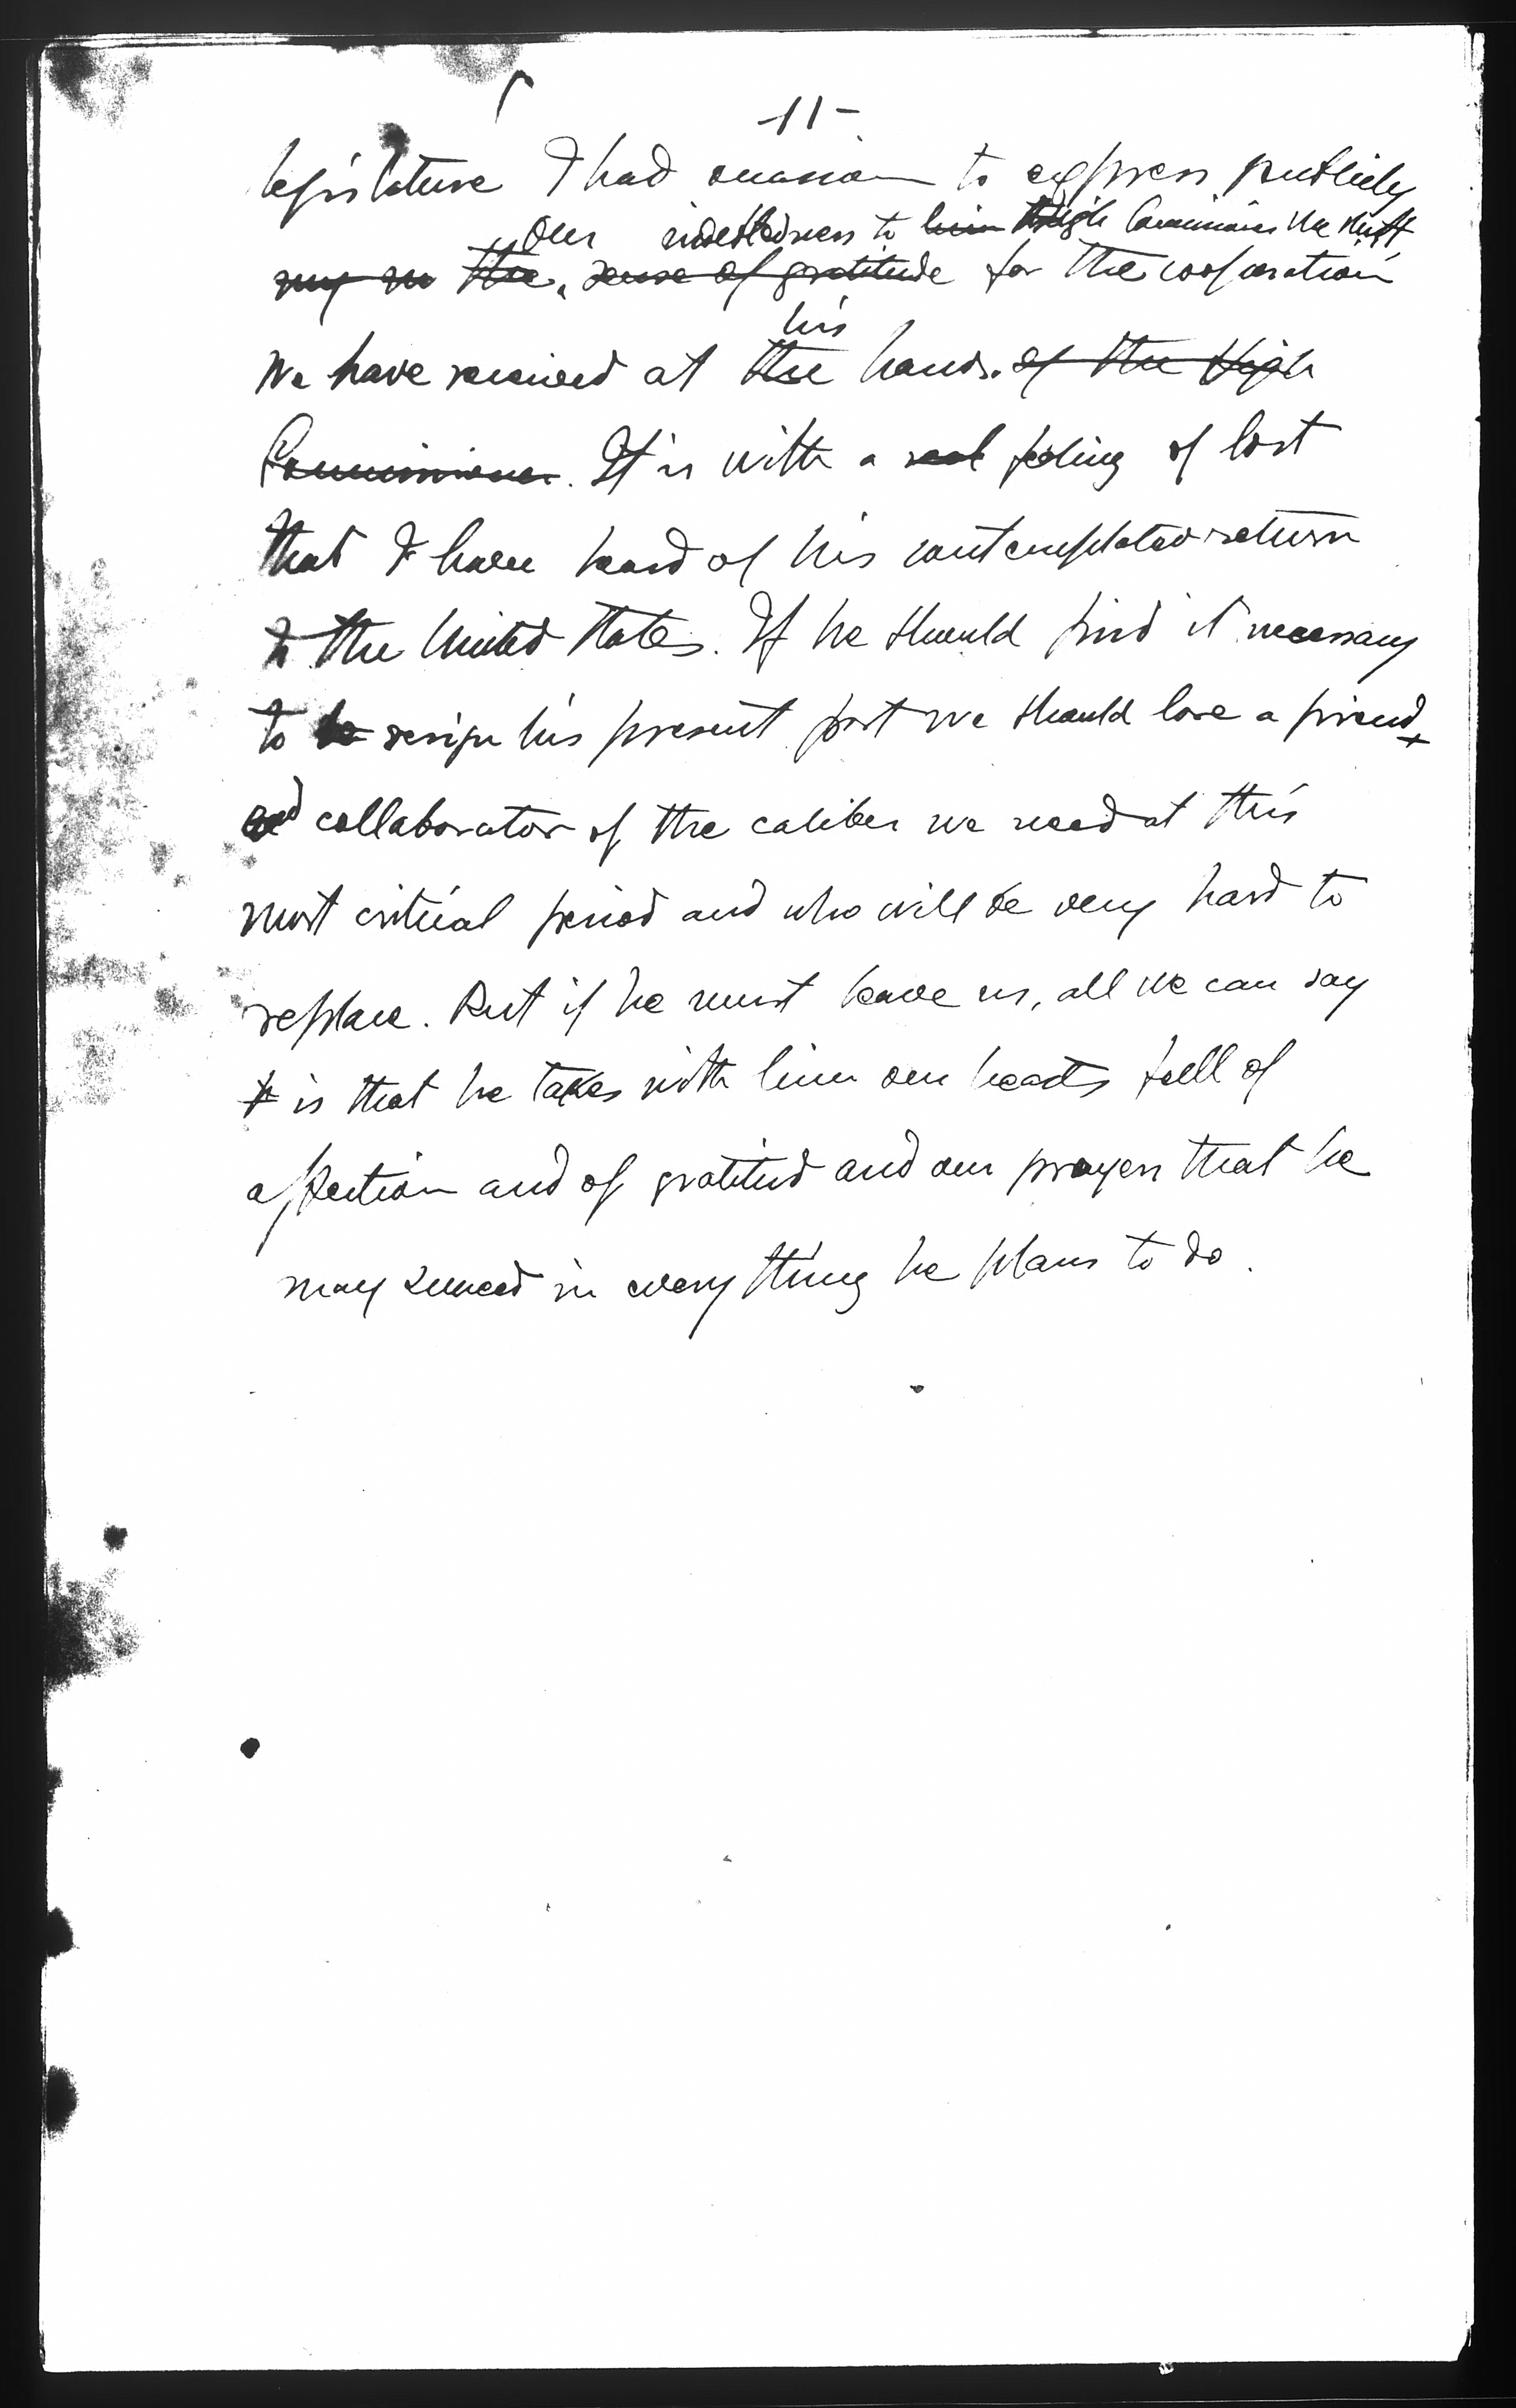 -11-
legislature I had occasion to express publicly
Our indebtedness to him High Commissioner McNutt
my the, sense of gratitude for the cooperation
his
we have received at the hands. of the High
Commissioner. It is with a real feeling of lost
that I have heard of his contemplated return
to the United States. If he should find it necessary
to be resign his present post we should lose a friend
and collaborator of the caliber we need at this
most critical period and who will be very hard to
replace. But if he must leave us, all we can say
is that he takes with him our hearts full of
affection and of gratitud and our prayers that he
may succeed in everything he plans to do.